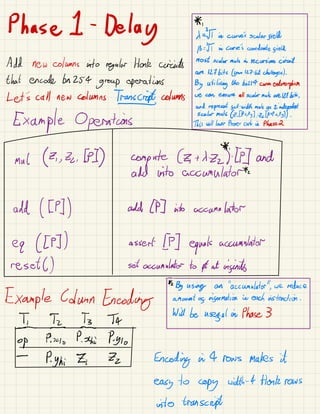 Phase 1 - Delay
Add new columns into regular Honk circuits
that encode bn254 group operations
Let's call new columns Transcript columns
*1
λ = ∛1 in curve's scalar field
β = ∛1 in curve's coordinate field
most scalar muls in recursive circuit
are 127 bits (from 127 bit challenges).
By utilising the bn254 curve endomorphism
we can ensure all scalar muls are 127 bits,
and represent full-width muls as 2 independent
scalar muls
This will lower Prover costs in Phase 2
Example Operations
mul (z₁, z₂, [P]) compute (z₁ + λz₂)·[P] and *1
add into accumulator *2
add ([P]) add [P] into accumulator
eq ([P]) assert [P] equals accumulator
reset() set accumulator to pt at infinity
*2 By using an "accumulator", we reduce
amount of information in each instruction.
Will be useful in Phase 3
Example Column Encoding
T₁ T₂ T₃ T₄
op P.xlo P.xhi P.ylo
— P.yhi z₁ z₂
Encoding in 4 rows makes it
easy to copy width-4 Honk rows
into transcript